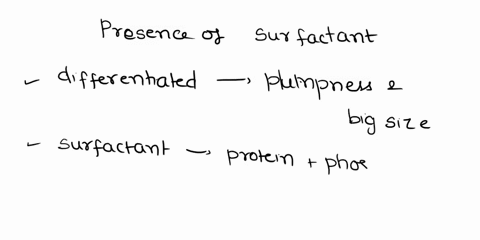 Presence of surfactant
✓ differentiated → plumpness &
big size
✓ surfactant → protein + phos